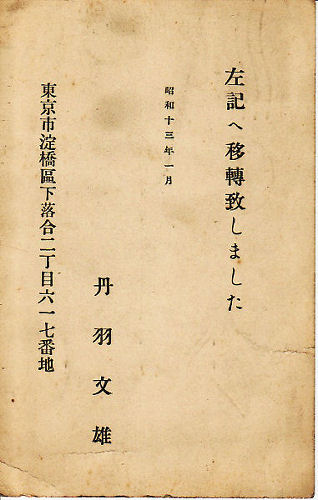 左記へ移轉致しました
昭和十三年一月
丹羽文雄
東京市淀橋區下落合二丁目六一七番地